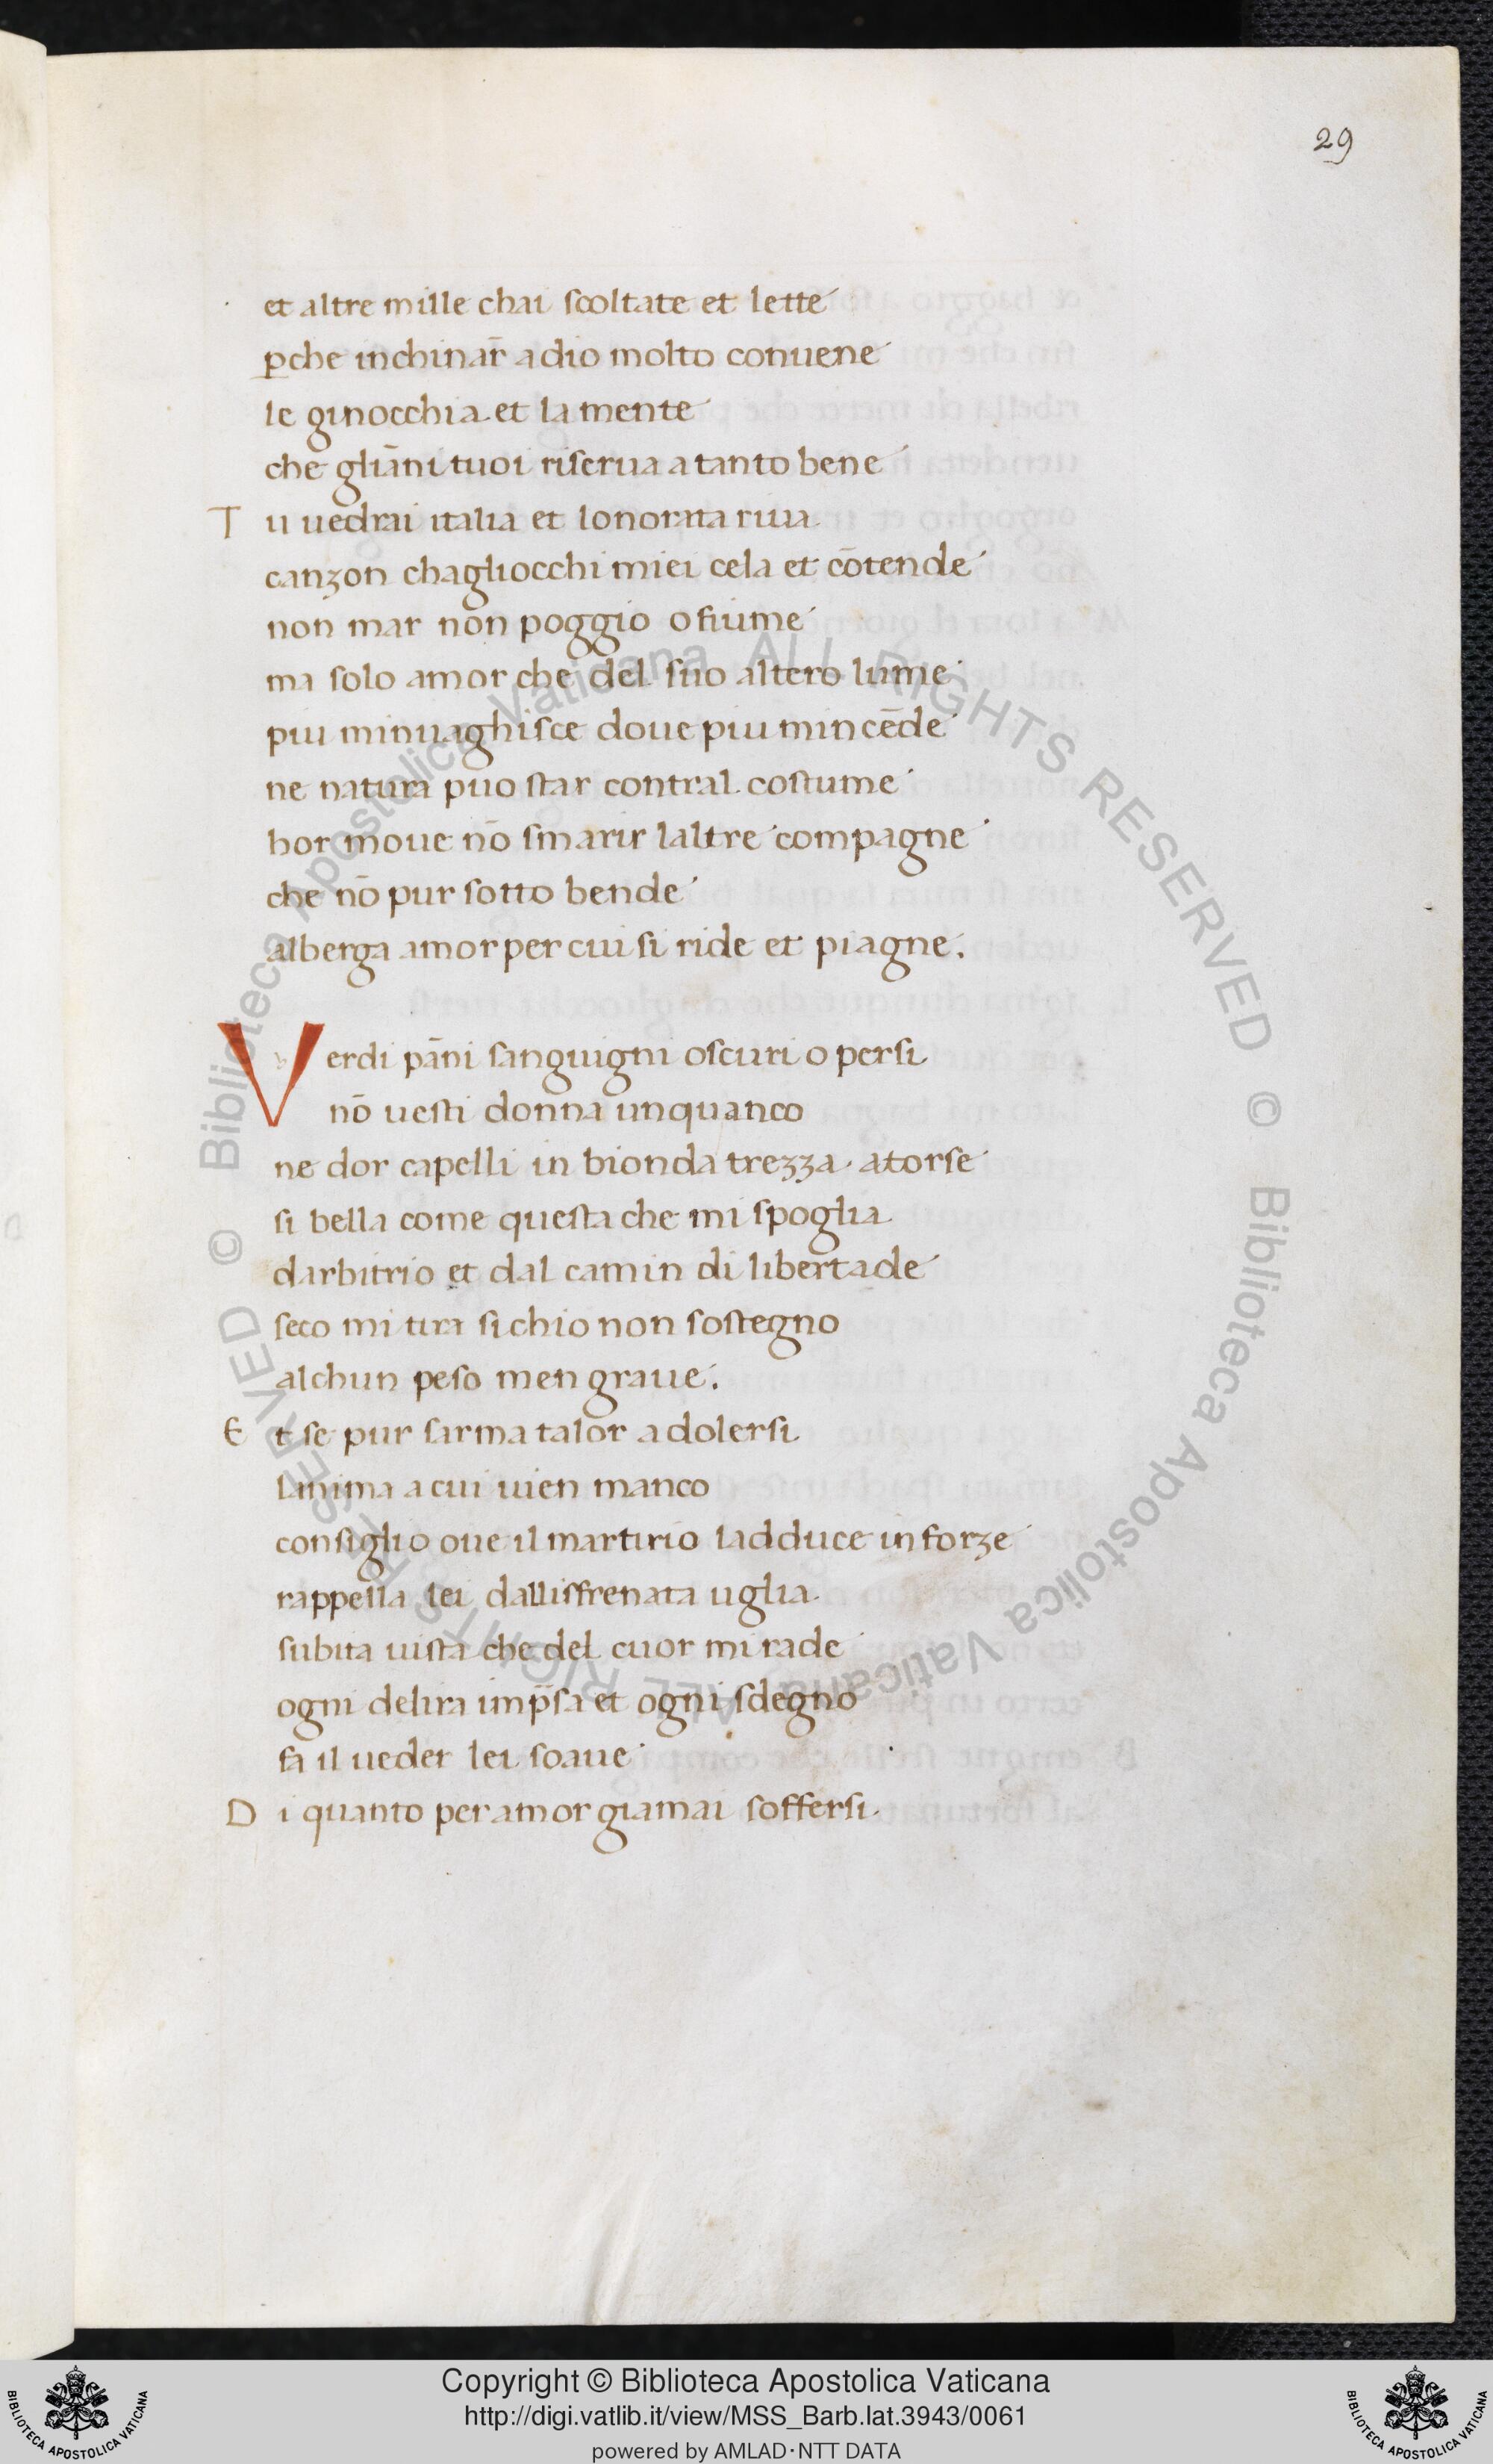 29
et altre mille chai scoltate et lette
ꝑche inchinar̄ a dio molto conuene
le ginocchia et la mente
che gliāni tuoi riserua a tanto bene
T u uedrai italia et lonorata riua
canzon chagliocchi miei cela et cōtende
non mar non poggio o fiume
ma solo amor che del suo altero lume
piu minuaghisce doue piu mincēde
ne natura puo star contral costume
hor moue nō smarir laltre compagne
che nō pur sotto bende
alberga amor per cui si ride et piagne.
Verdi pāni sanguigni oscuri o persi
nō uesti donna unquanco
ne dor capelli in bionda trezza · atorse
si bella come questa che mi spoglia
darbitrio et dal camin di libertade
seco mi tira si chio non sostegno
alchun peso men graue.
E t se pur sarma talor a dolersi
lanima a cui uien manco
consiglio oue il martirio ladduce in forze
rappella lei dallisfrenata uglia
subita uista che del cuor mi rade
ogni delira imp̄sa et ogni sdegno
fa il ueder lei soaue
D i quanto per amor giamai soffersi.
© Biblioteca Apostolica Vaticana ALL RIGHTS RESERVED © Biblioteca Apostolica Vaticana ALL RIGHTS RESERVED
Copyright © Biblioteca Apostolica Vaticana
http://digi.vatlib.it/view/MSS_Barb.lat.3943/0061
powered by AMLAD·NTT DATA
BIBLIOTECA APOSTOLICA VATICANA
BIBLIOTECA APOSTOLICA VATICANA